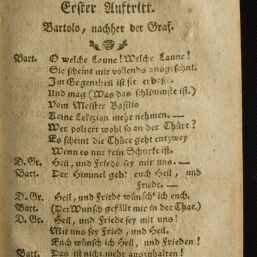 Erster Auftritt.
Bartolo, nachher der Graf.
Bart. O welche Laune! Welche Laune!
Sie scheint mir vollends ausgesöhnt.
Im Gegentheil ist sie erboßt.
Und mag (Was das schlimmste ist.)
Vom Meister Basilio
Keine Lektion mehr nehmen. —
Wer poltert wohl so an der Thüre?
Es scheint die Thüre geht entzwey
Wenn es nur kein Schurke ist.
D. Gr. Heil, und Friede sey mit uns. —
Bart. Der Himmel geb' euch Heil, und
Friede. —
D. Gr. Heil, und Friede wünsch' ich euch.
Bart. (Der Wunsch gefällt mir in der That.)
D. Gr. Heil, und Friede sey mit uns!
Mit uns sey Fried, und Heil.
Euch wünsch ich Heil, und Frieden!
Bart. Das ist nicht mehr auszuhalten!